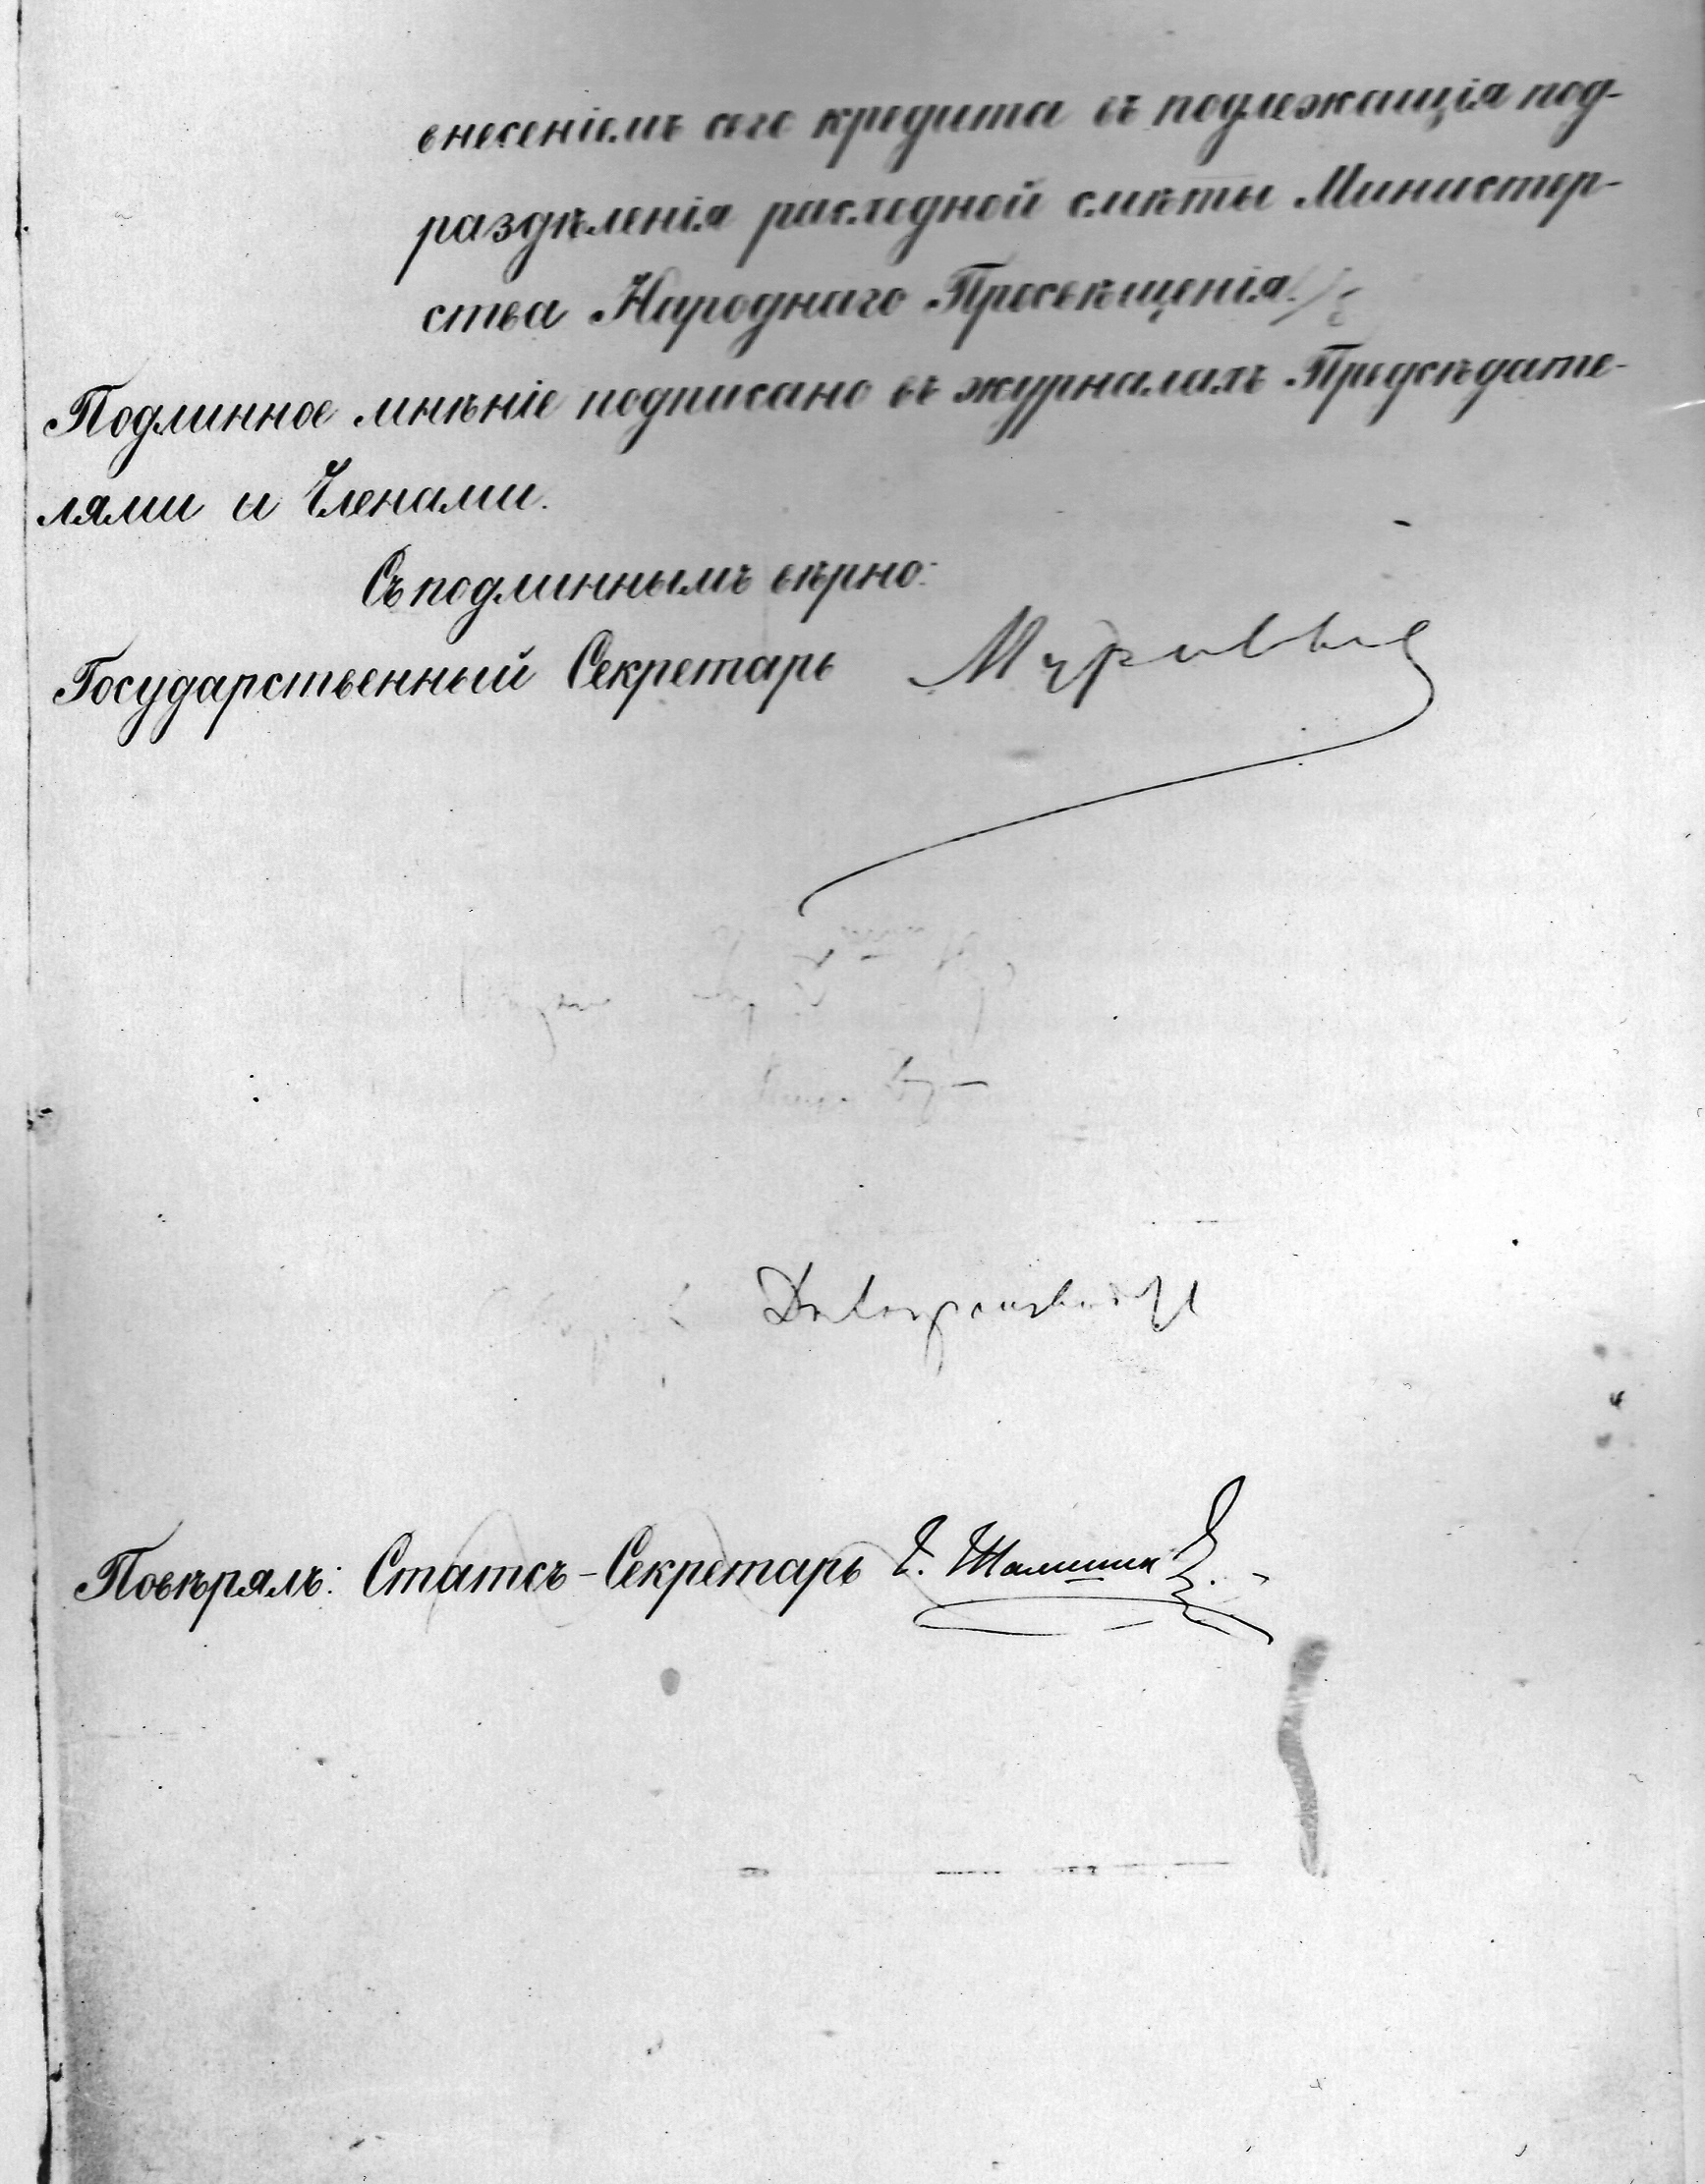 внесеніемъ сего кредита въ подлежащія под-
раздѣленія расходной смѣты Министер-
ства Народнаго Просвѣщенія.
Подлинное мнѣніе подписано въ журналахъ Предсѣдате-
лями и Членами.
Съ подлиннымъ вѣрно:
Государственный Секретарь
Повѣрялъ: Статсъ-Секретарь